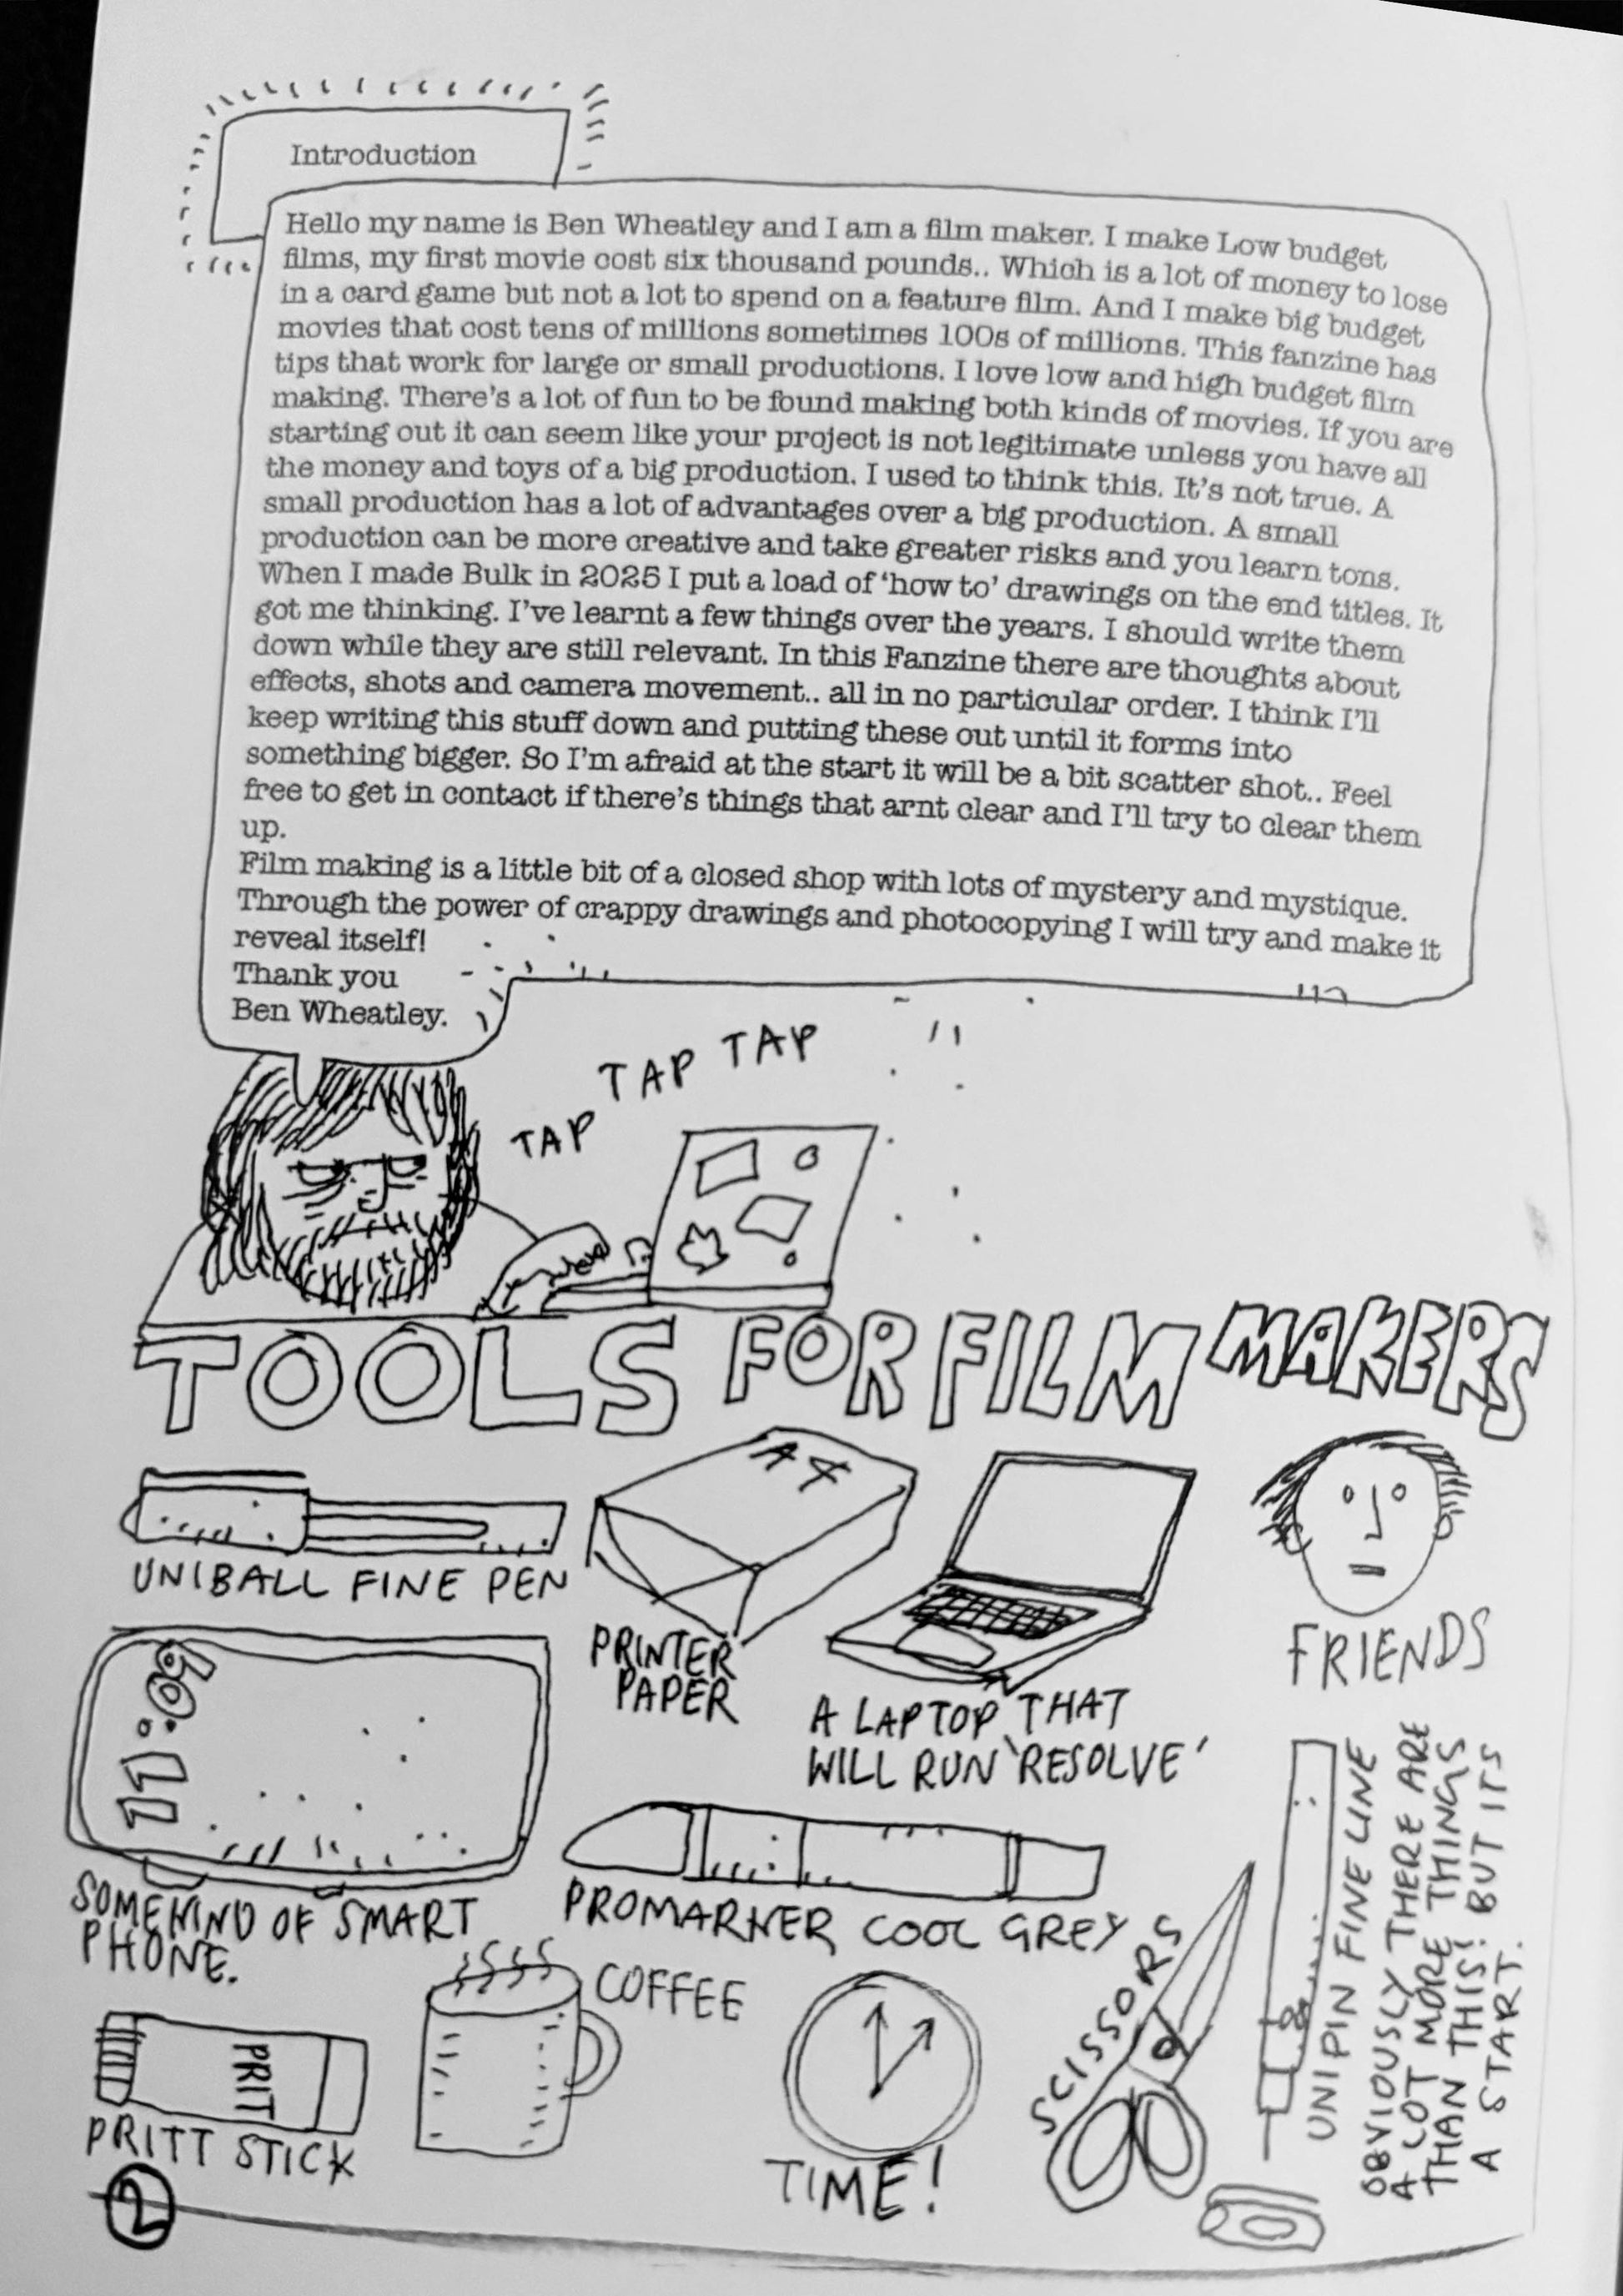 Introduction
Hello my name is Ben Wheatley and I am a film maker. I make Low budget
films, my first movie cost six thousand pounds.. Which is a lot of money to lose
in a card game but not a lot to spend on a feature film. And I make big budget
movies that cost tens of millions sometimes 100s of millions. This fanzine has
tips that work for large or small productions. I love low and high budget film
making. There's a lot of fun to be found making both kinds of movies. If you are
starting out it can seem like your project is not legitimate unless you have all
the money and toys of a big production. I used to think this. It's not true. A
small production has a lot of advantages over a big production. A small
production can be more creative and take greater risks and you learn tons.
When I made Bulk in 2025 I put a load of 'how to' drawings on the end titles. It
got me thinking. I've learnt a few things over the years. I should write them
down while they are still relevant. In this Fanzine there are thoughts about
effects, shots and camera movement.. all in no particular order. I think I'll
keep writing this stuff down and putting these out until it forms into
something bigger. So I'm afraid at the start it will be a bit scatter shot.. Feel
free to get in contact if there's things that arnt clear and I'll try to clear them
up.
Film making is a little bit of a closed shop with lots of mystery and mystique.
Through the power of crappy drawings and photocopying I will try and make it
reveal itself!
Thank you
Ben Wheatley.
TAP TAP TAP
TOOLS FOR FILM MAKERS
UNIBALL FINE PEN
A4
PRINTER
PAPER
A LAPTOP THAT
WILL RUN 'RESOLVE'
FRIENDS
11:09
SOMEKIND OF SMART
PHONE.
PROMARKER COOL GREY
SCISSORS
UNIPIN FINE LINE
OBVIOUSLY THERE ARE
A LOT MORE THINGS
THAN THIS! BUT ITS
A START.
PRITT
PRITT STICK
COFFEE
TIME!
2